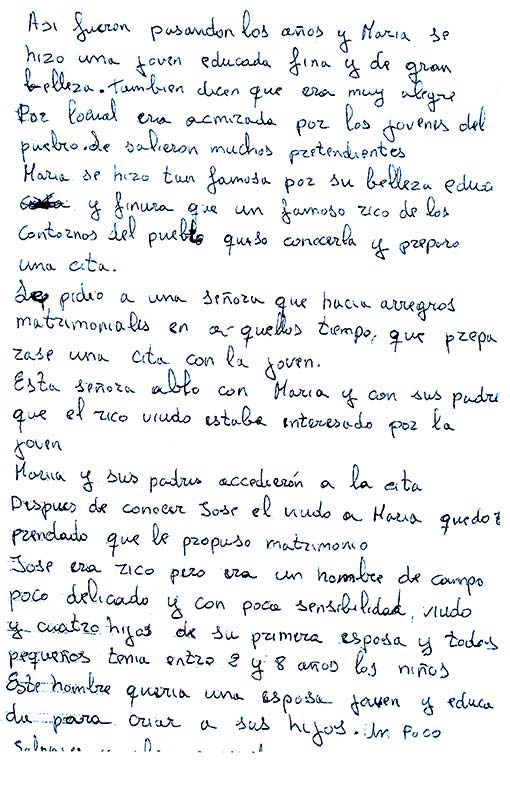 Asi fueron pasandon los años y Maria se
hizo una joven educada fina y de gran
belleza. tambien dicen que era muy alegre
Por locual era admirada por los jovenes del
pueblo. le salieron muchos pretendientes
Maria se hizo tan famosa por su belleza educa
y finura que un famoso rico de los
contornos del pueblo quiso conocerla y preparo
una cita.
Le pidio a una señora que hacia arregros
matrimoniales en a quellos tiempo, que prepa
rase una cita con la joven.
Esta señora ablo con Maria y con sus padre
que el rico viudo estaba interesado por la
joven
Maria y sus padres accedierón a la cita
Despues de conocer Jose el viudo a Maria quedo t
prendado que le propuso matrimonio
Jose era rico pero era un hombre de campo
poco delicado y con poca sensibilidad, viudo
y cuatro hijos de su primera esposa y todos
pequeños tenia entre 2 y 8 años los niños
Este hombre queria una esposa joven y educa
da para criar a sus hijos. Un poco